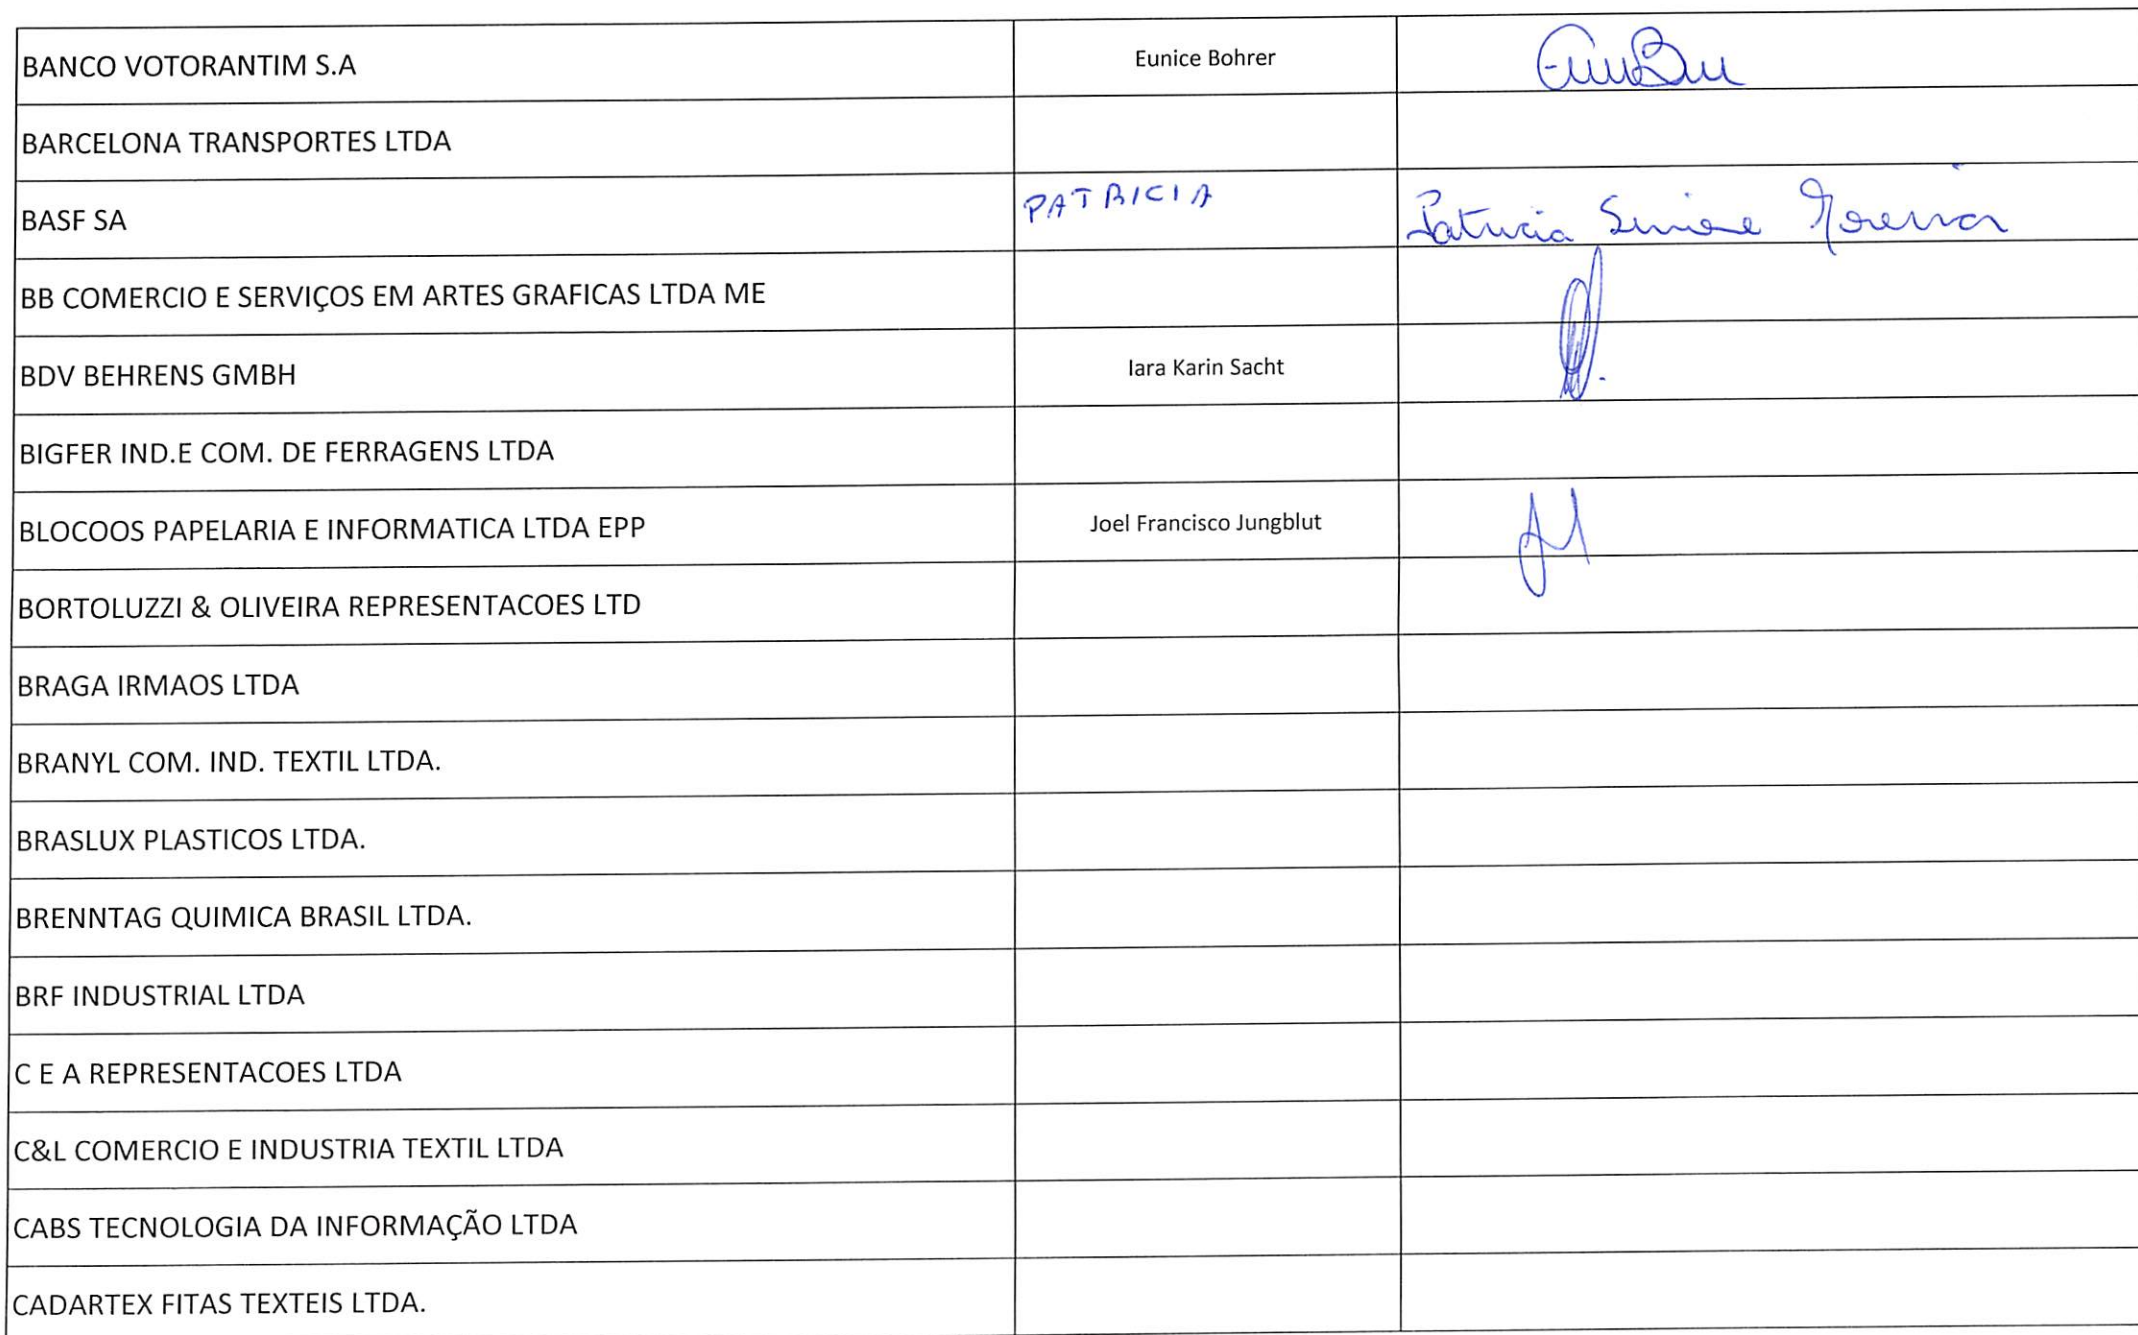 BANCO VOTORANTIM S.A Eunice Bohrer
BARCELONA TRANSPORTES LTDA
BASF SA PATRICIA Patricia Simone Moreira
BB COMERCIO E SERVIÇOS EM ARTES GRAFICAS LTDA ME
BDV BEHRENS GMBH Iara Karin Sacht
BIGFER IND.E COM. DE FERRAGENS LTDA
BLOCOOS PAPELARIA E INFORMATICA LTDA EPP Joel Francisco Jungblut
BORTOLUZZI & OLIVEIRA REPRESENTACOES LTD
BRAGA IRMAOS LTDA
BRANYL COM. IND. TEXTIL LTDA.
BRASLUX PLASTICOS LTDA.
BRENNTAG QUIMICA BRASIL LTDA.
BRF INDUSTRIAL LTDA
C E A REPRESENTACOES LTDA
C&L COMERCIO E INDUSTRIA TEXTIL LTDA
CABS TECNOLOGIA DA INFORMAÇÃO LTDA
CADARTEX FITAS TEXTEIS LTDA.